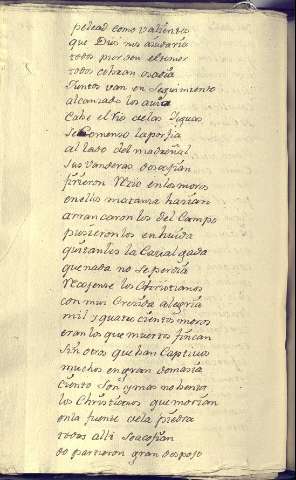 pelead como valientes
que Dios nos ayudaria
todos pierden el temor
todos cobran osadia
Juntos van en seguimiento
alcanzado los avia
Cabe el Rio de las Yeguas
se Comenso la porfia
al lado del madroñal
sus vanderas desafian
firieron Recio en los moros
en ellos matanza hazian
arrancaron los del Campo
pusieron los en huida
quitanles la Caval gada
que nada no se perdia
Recojense los Christianos
con muy Crezida alegria
mil y quatro cientos moros
eran los que muertos fincan
sin otros que han Captivos
muchos en gran demasia
ciento son y mas no ciento
los Christianos que morian
en la fuente de la piedra
todos alli se acojian
do partieron gran despojo